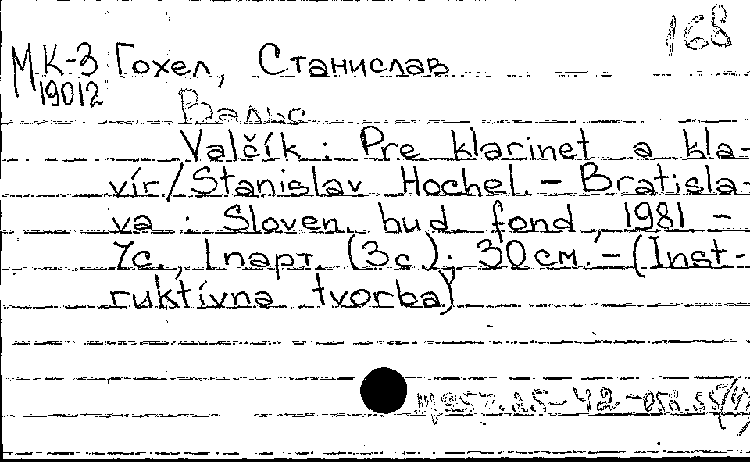 168
МК-3 Гохел, Станислав
19012
Вальс
Valčík : Pre klarinet a kla-
vír / Stanislav Hochel. – Bratisla-
va : Sloven. bud fond, 1981 –
7с., 1 парт. (3с.); 30см. – (Inst-
ruktívna tvorba)